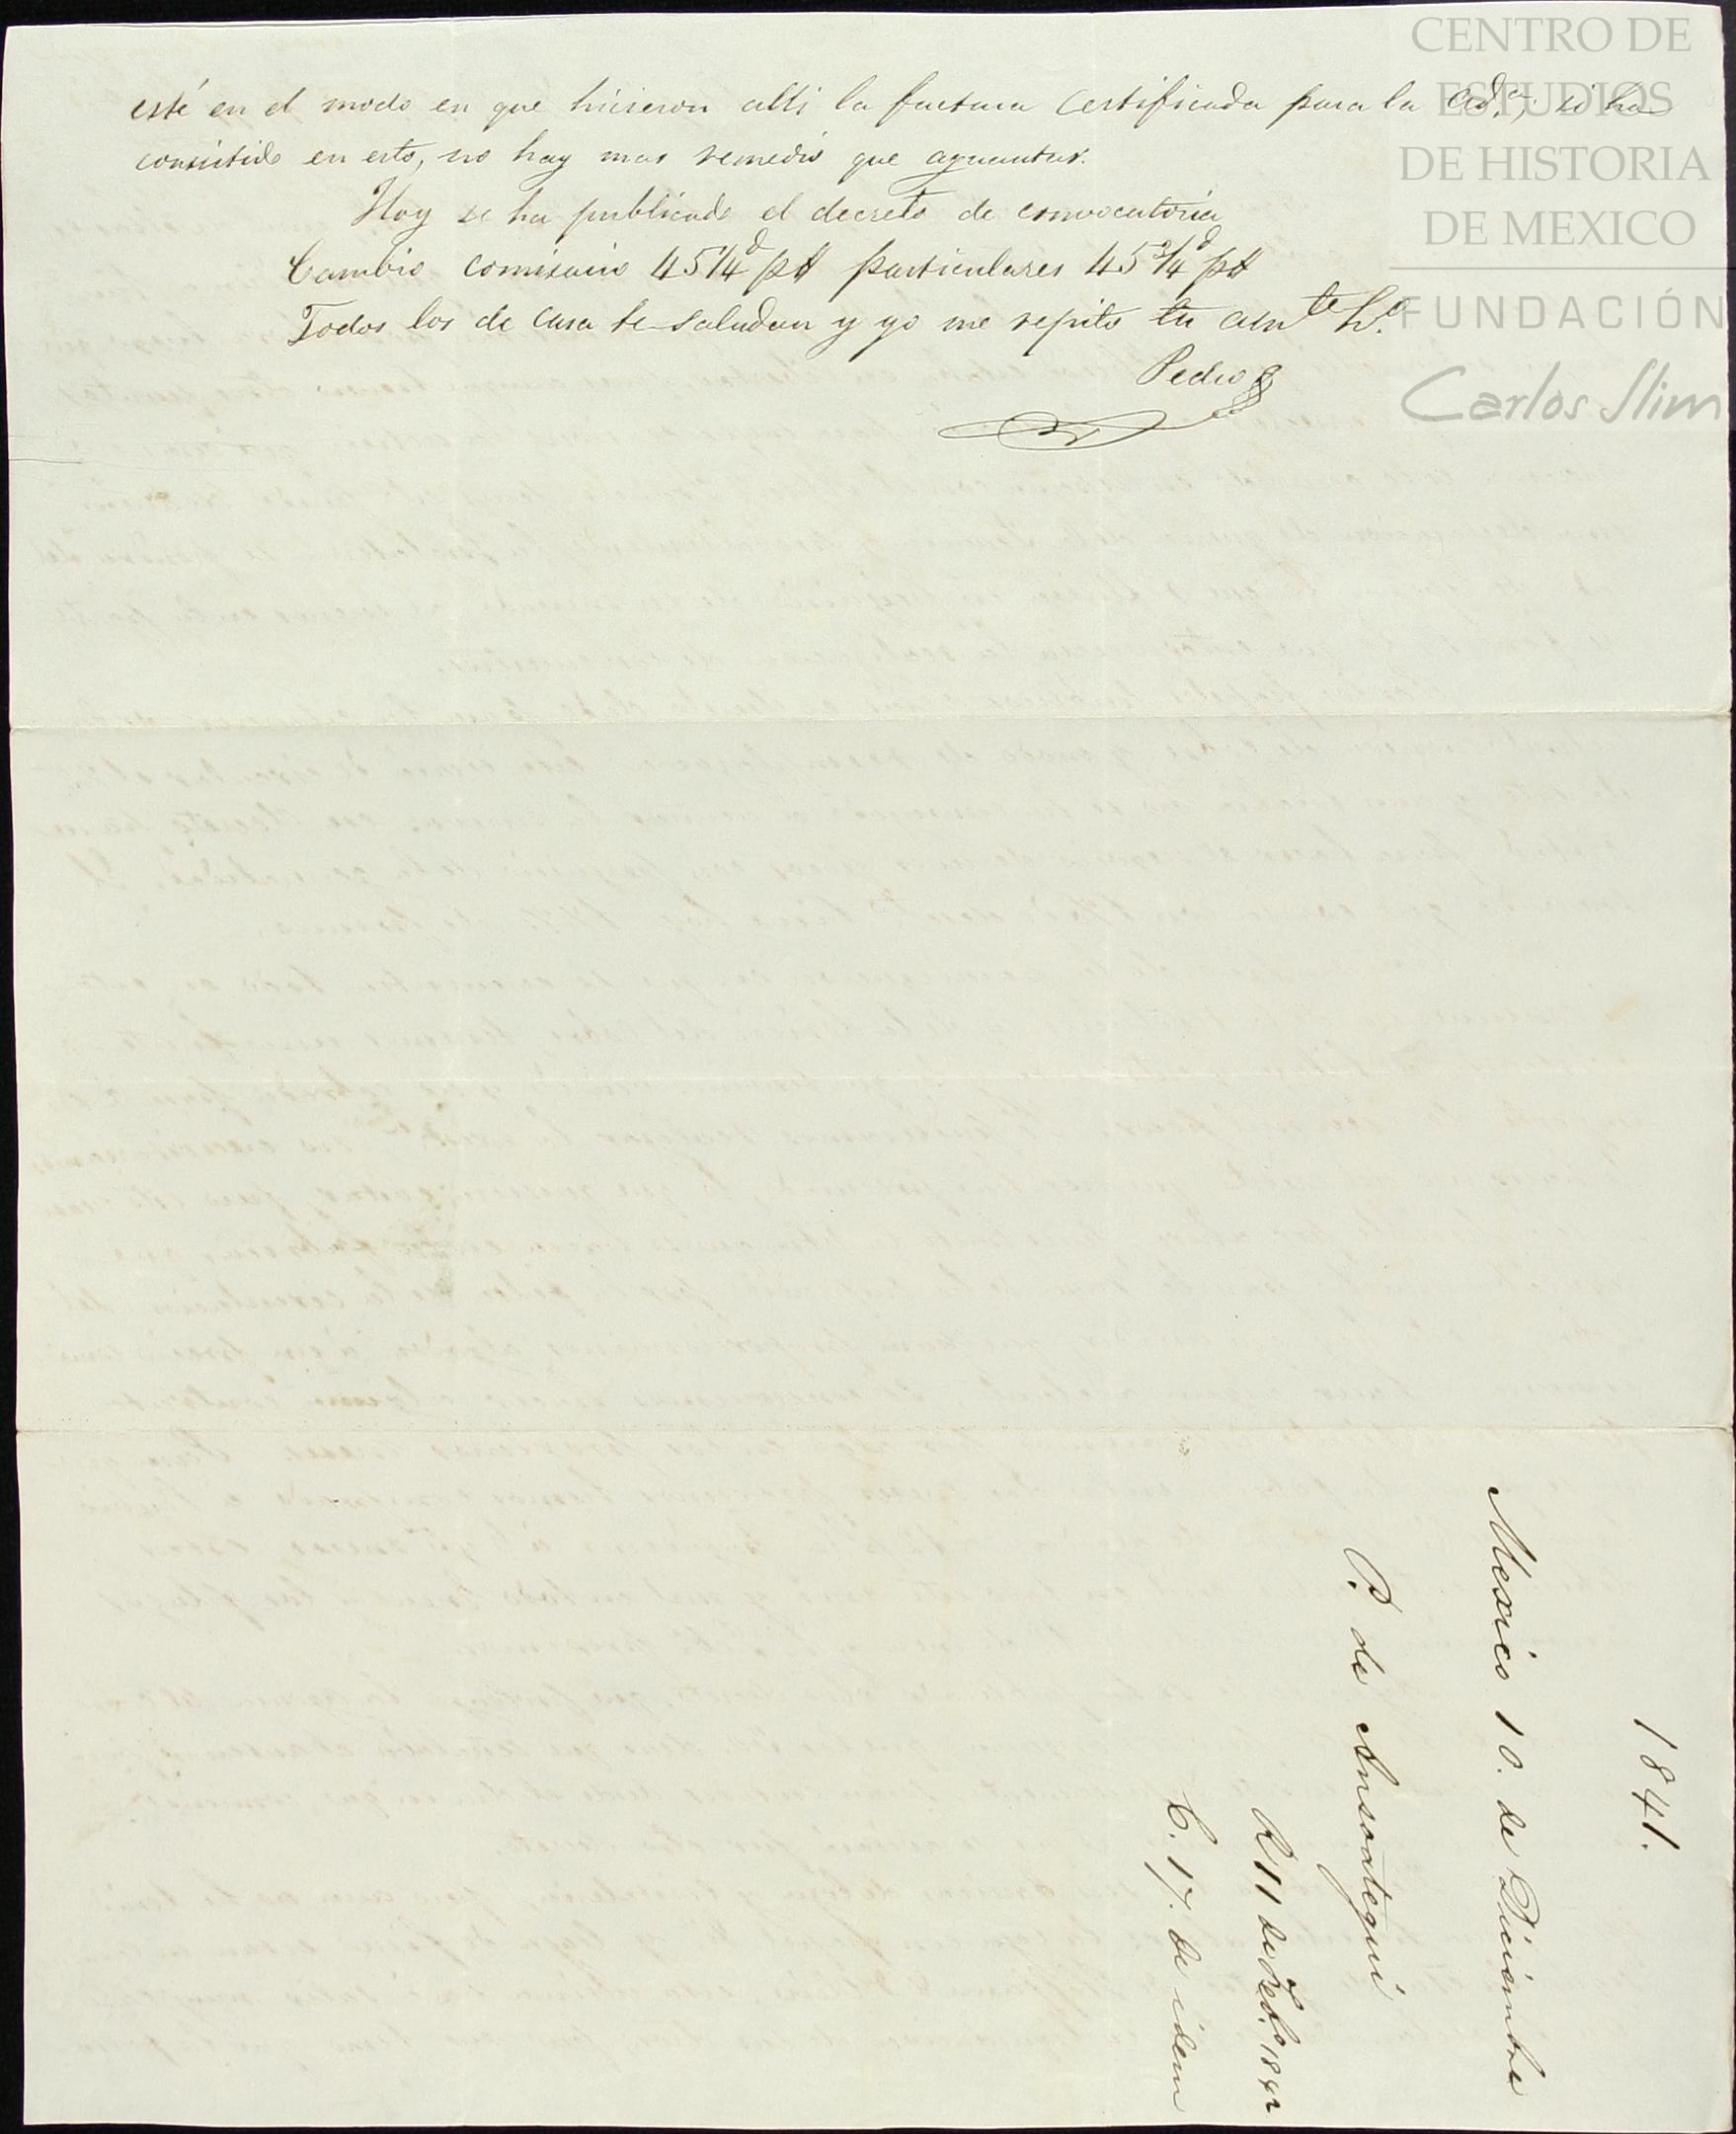 esté en el modo en que hicieron allí la factura certificada para la Ad.ª; si ha
consistido en esto, no hay mas remedio que aguantar.
Hoy se ha publicado el decreto de convocatoria
Cambio comisario 45¼ᵈ p$ particulares 45¾ᵈ p$
Todos los de casa te saludan y yo me repito tu am.te h.º
Pedro
1841.
Mexico 10. de Diciembre
P. de Ansoategui
R 11 de Feb.º 1842
C. 17. de idem
CENTRO DE
ESTUDIOS
DE HISTORIA
DE MEXICO
FUNDACIÓN
Carlos Slim